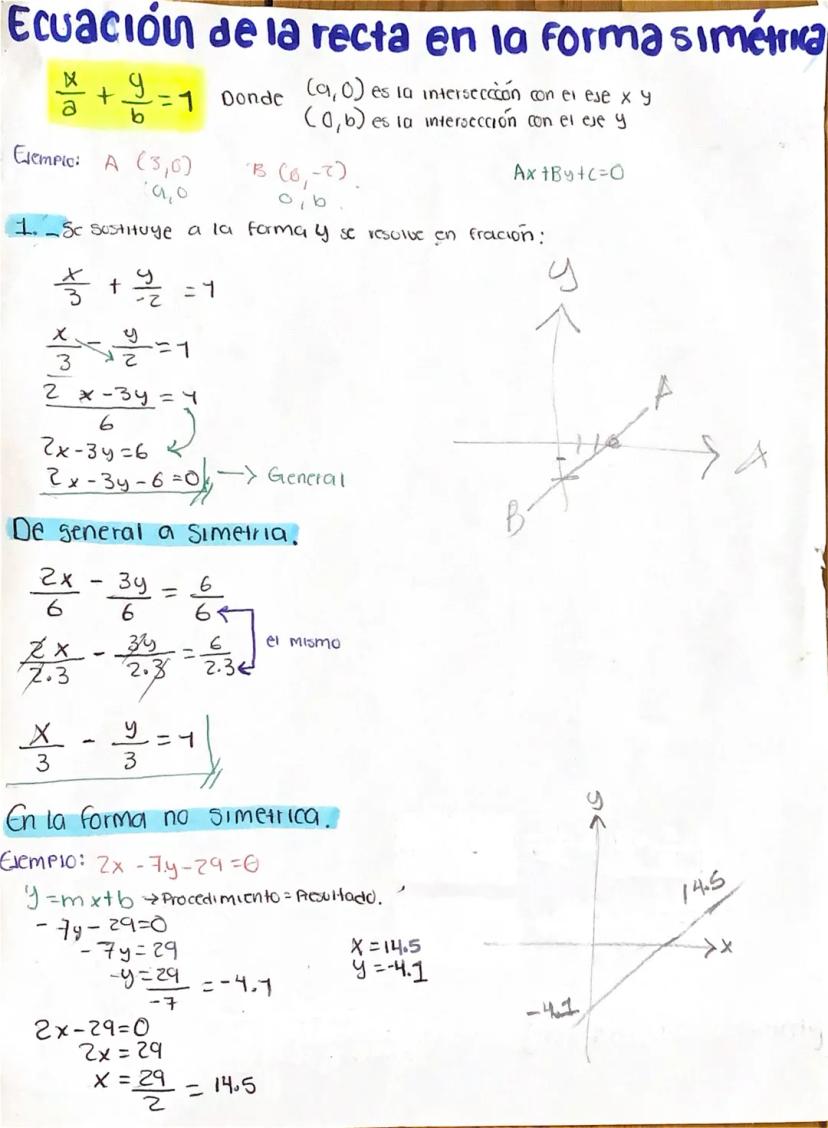 Ecuación de la recta en la forma simétrica
x/a + y/b = 1 Donde (a,0) es la intersección con el eje x y
(0,b) es la intersección con el eje y
Ejemplo: A (3,0) B (0,-2). Ax+By+C=0
a,0 0,b.
1.- Se sustituye a la forma y se resolve en fración:
x/3 + y/-2 = 1
x/3 - y/2 = 1
2x-3y/6 = 1
2x-3y=6
2x-3y-6=0 → General
y
A
B
x
De general a simetria.
2x/6 - 3y/6 = 6/6
2x/2.3 - 3y/2.3 = 6/2.3 el mismo
x/3 - y/3 = 1
En la forma no simetrica.
Ejemplo: 2x-7y-29=0
y=mx+b → Procedimiento = Resultado.
-7y-29=0
-7y=29
-y=29/-7 = -4.1
x=14.5
y=-4.1
2x-29=0
2x=29
x=29/2 = 14.5
y
14.5
x
-4.1